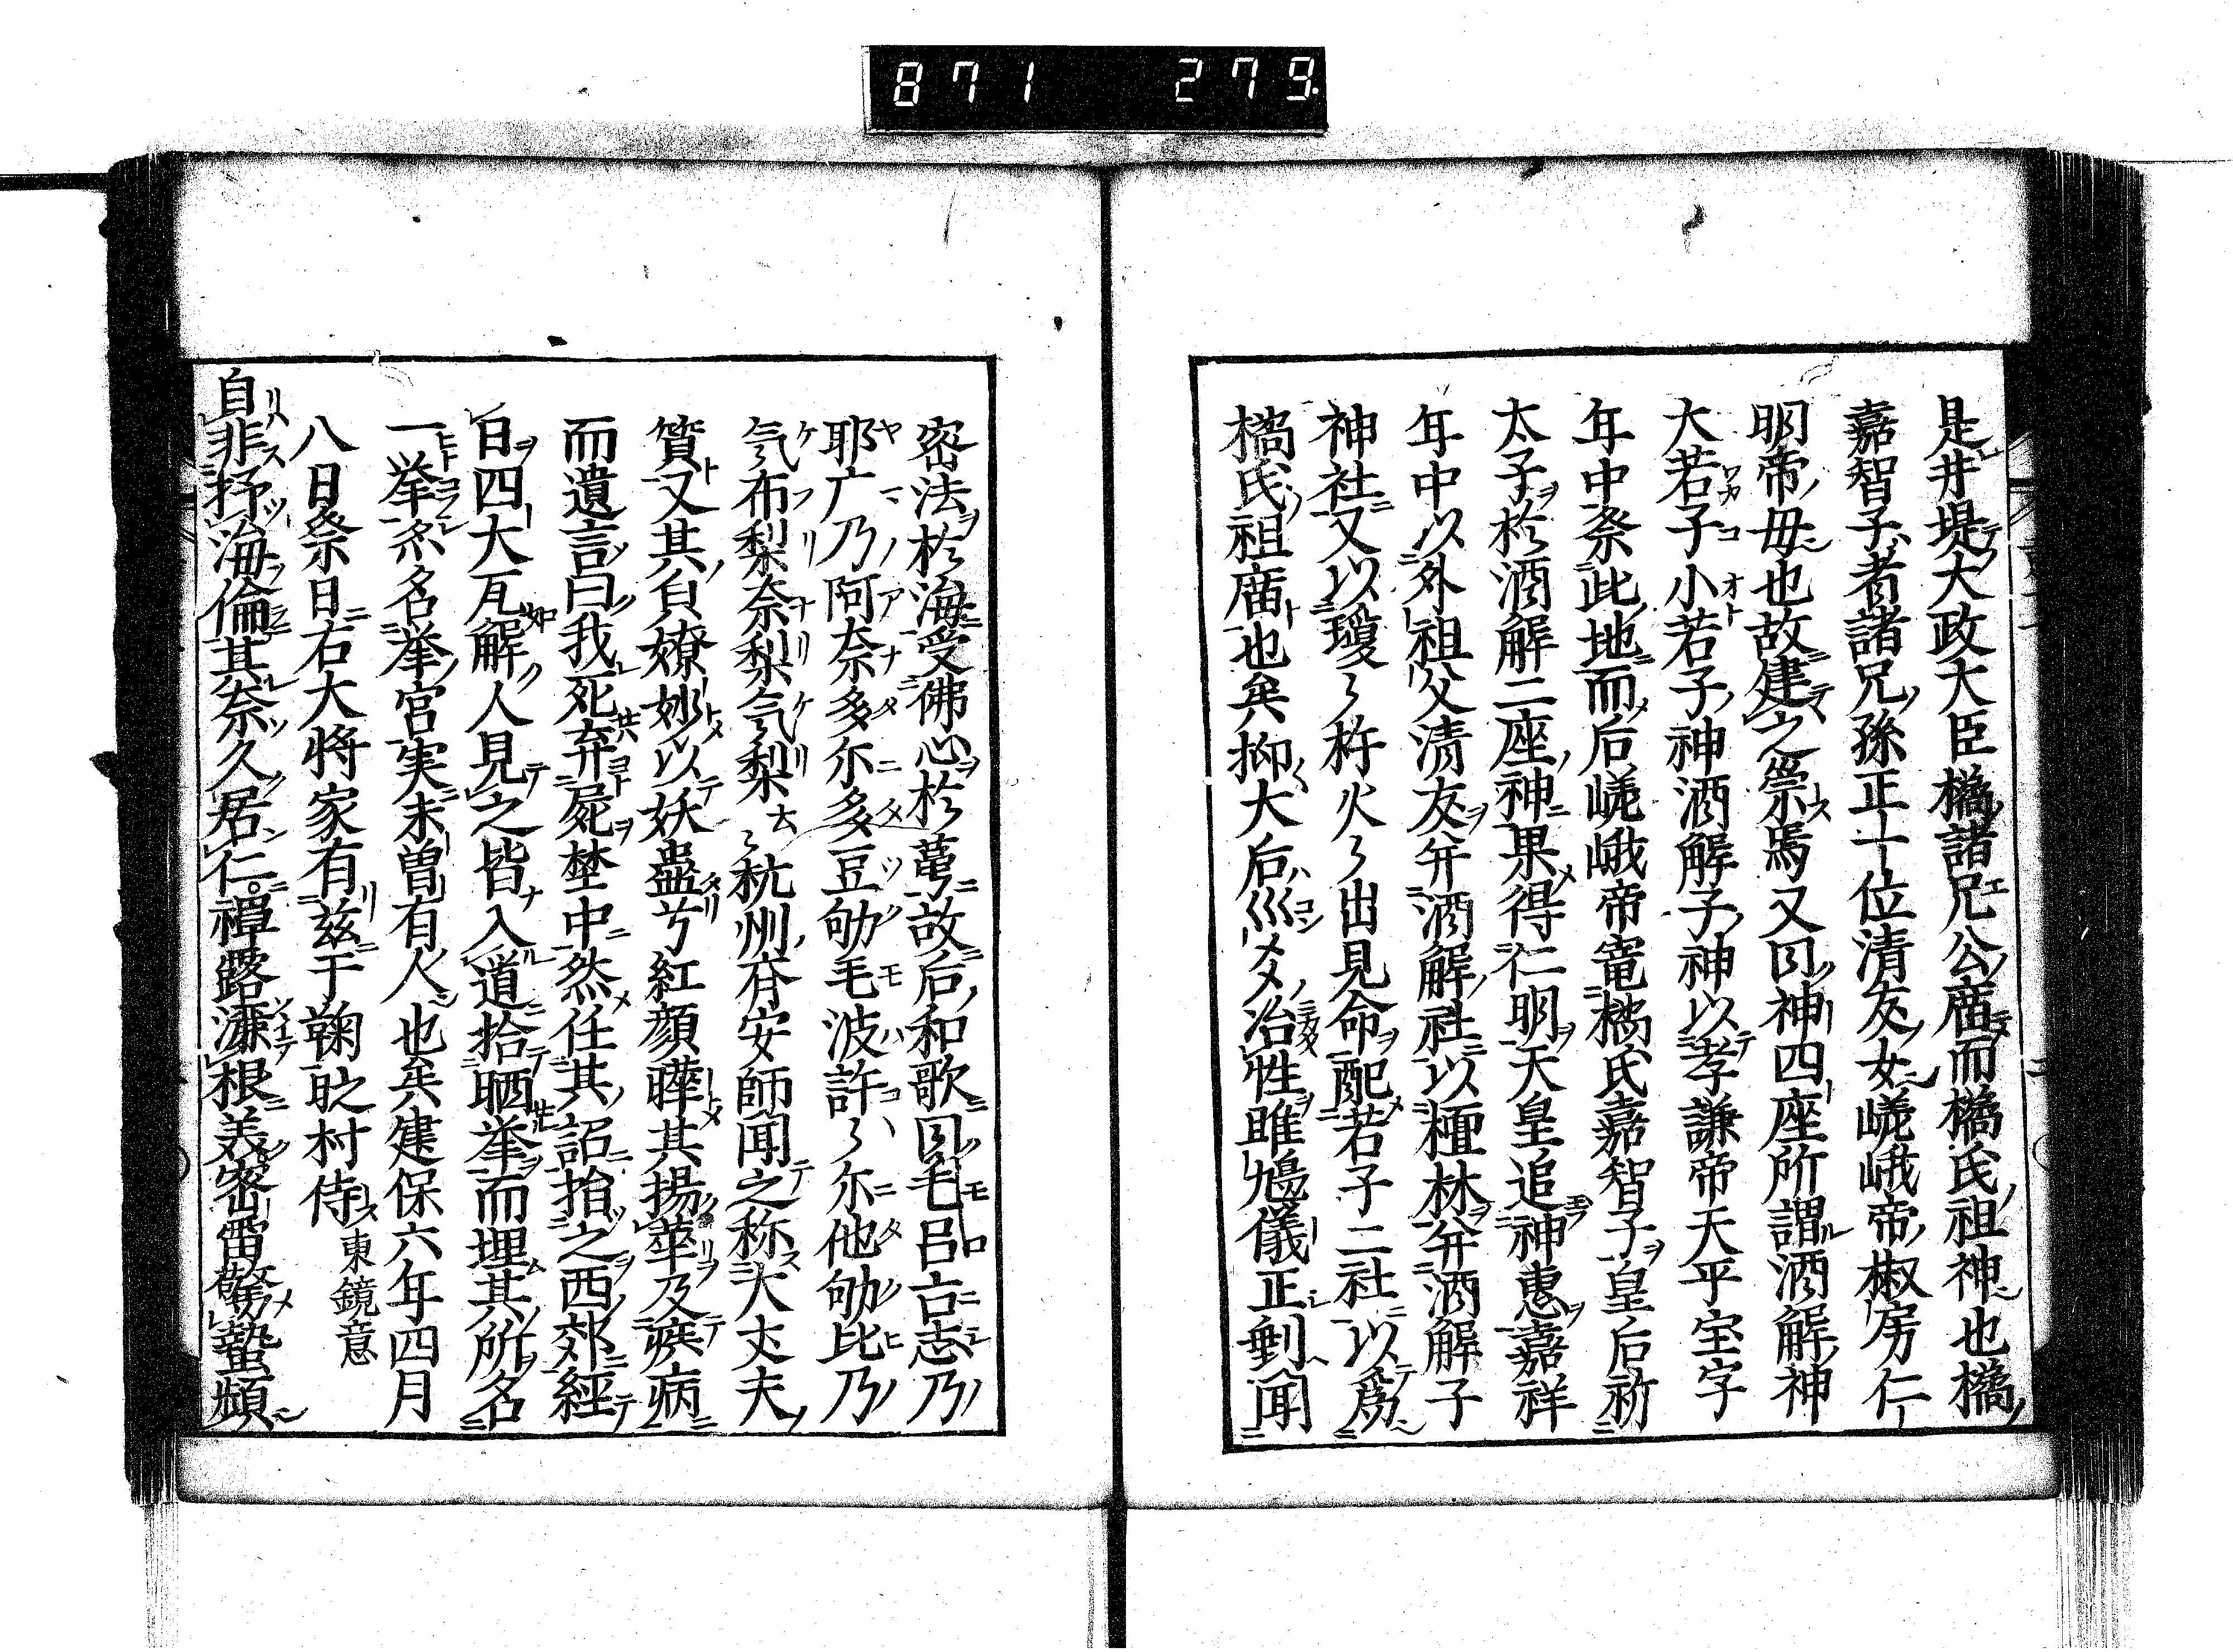 871 279
是井堤大政大臣橘諸兄公庿而橘氏祖神也橘
嘉智子者諸兄孫正一位清友女嵯峨帝椒房仁
明帝毋也故建之祟焉又曰神四座所謂酒解神
大若子小若子神酒解子神以孝謙帝天平宝字
年中祭此地而后嵯峨帝竃橘氏嘉智子皇后祈
太子於酒解二座神果得仁明天皇追神惠嘉祥
年中以外祖父清友并酒解社以檀林并酒解子
神社又以瓊〻杵火〻出見命配若子二社以爲
橘氏祖庿也矣抑大后巛爻冶性雎鳩儀正剩聞
密法於海受佛心於蕚故后和歌曰毛呂古志乃
耶广乃阿奈多尓多豆劬毛波許〻尓他劬比乃
気布梨奈梨気梨去〻杭州府安師聞之称大丈夫
質又其皃嫽妙以妖蠱兮紅顔曄其揚華及疾病
而遺言曰我死弃屍埜中然任其詔捨之西郊經
日四大瓦解人見之皆入道拾晒挙而埋其所名
一挙杰名挙宮実未曽有人也矣建保六年四月
八日祭日右大将家有兹于鞠㫖村侍 東鏡意
自非抒海倫其奈久居仁禫露瀼根美密雷驚蟄頻